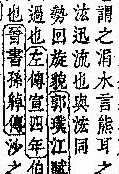 謂之涓水言能耳之
法迅流也與法同
勢回旋貌郭璞江賦
過也左傳宣四年伯
也晉書孫綽傳沙之